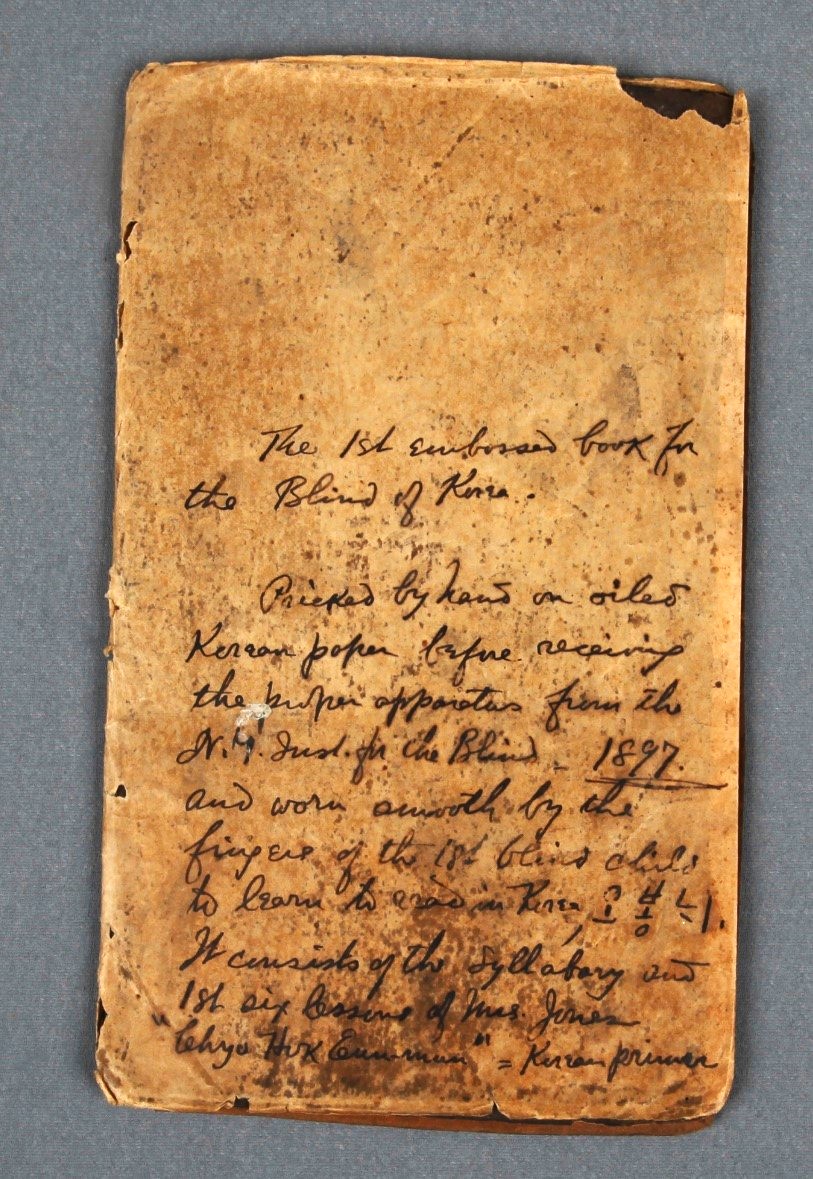 The 1st embossed book for
the Blind of Korea.
Pricked by hand on oiled
Korean paper before receiving
the proper apparatus from the
N.Y. Inst. for the Blind - 1897.
and worn smooth by the
fingers of the 1st blind child
to learn to read in Korea, 오봉ᄂᆡ.
It consists of the Syllabary and
1st six lessons of Mrs. Jones
"Chyo Hok Eunmun" = Korean primer